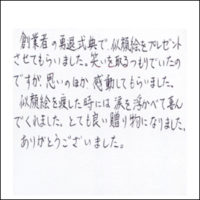 創業者の勇退式典で、似顔絵をプレゼント
させてもらいました。笑いを取るつもりでいたの
ですが、思いのほか感動してもらいました。
似顔絵を渡した時には涙を浮かべて喜ん
でくれました。とても良い贈り物になりました。
ありがとうございました。